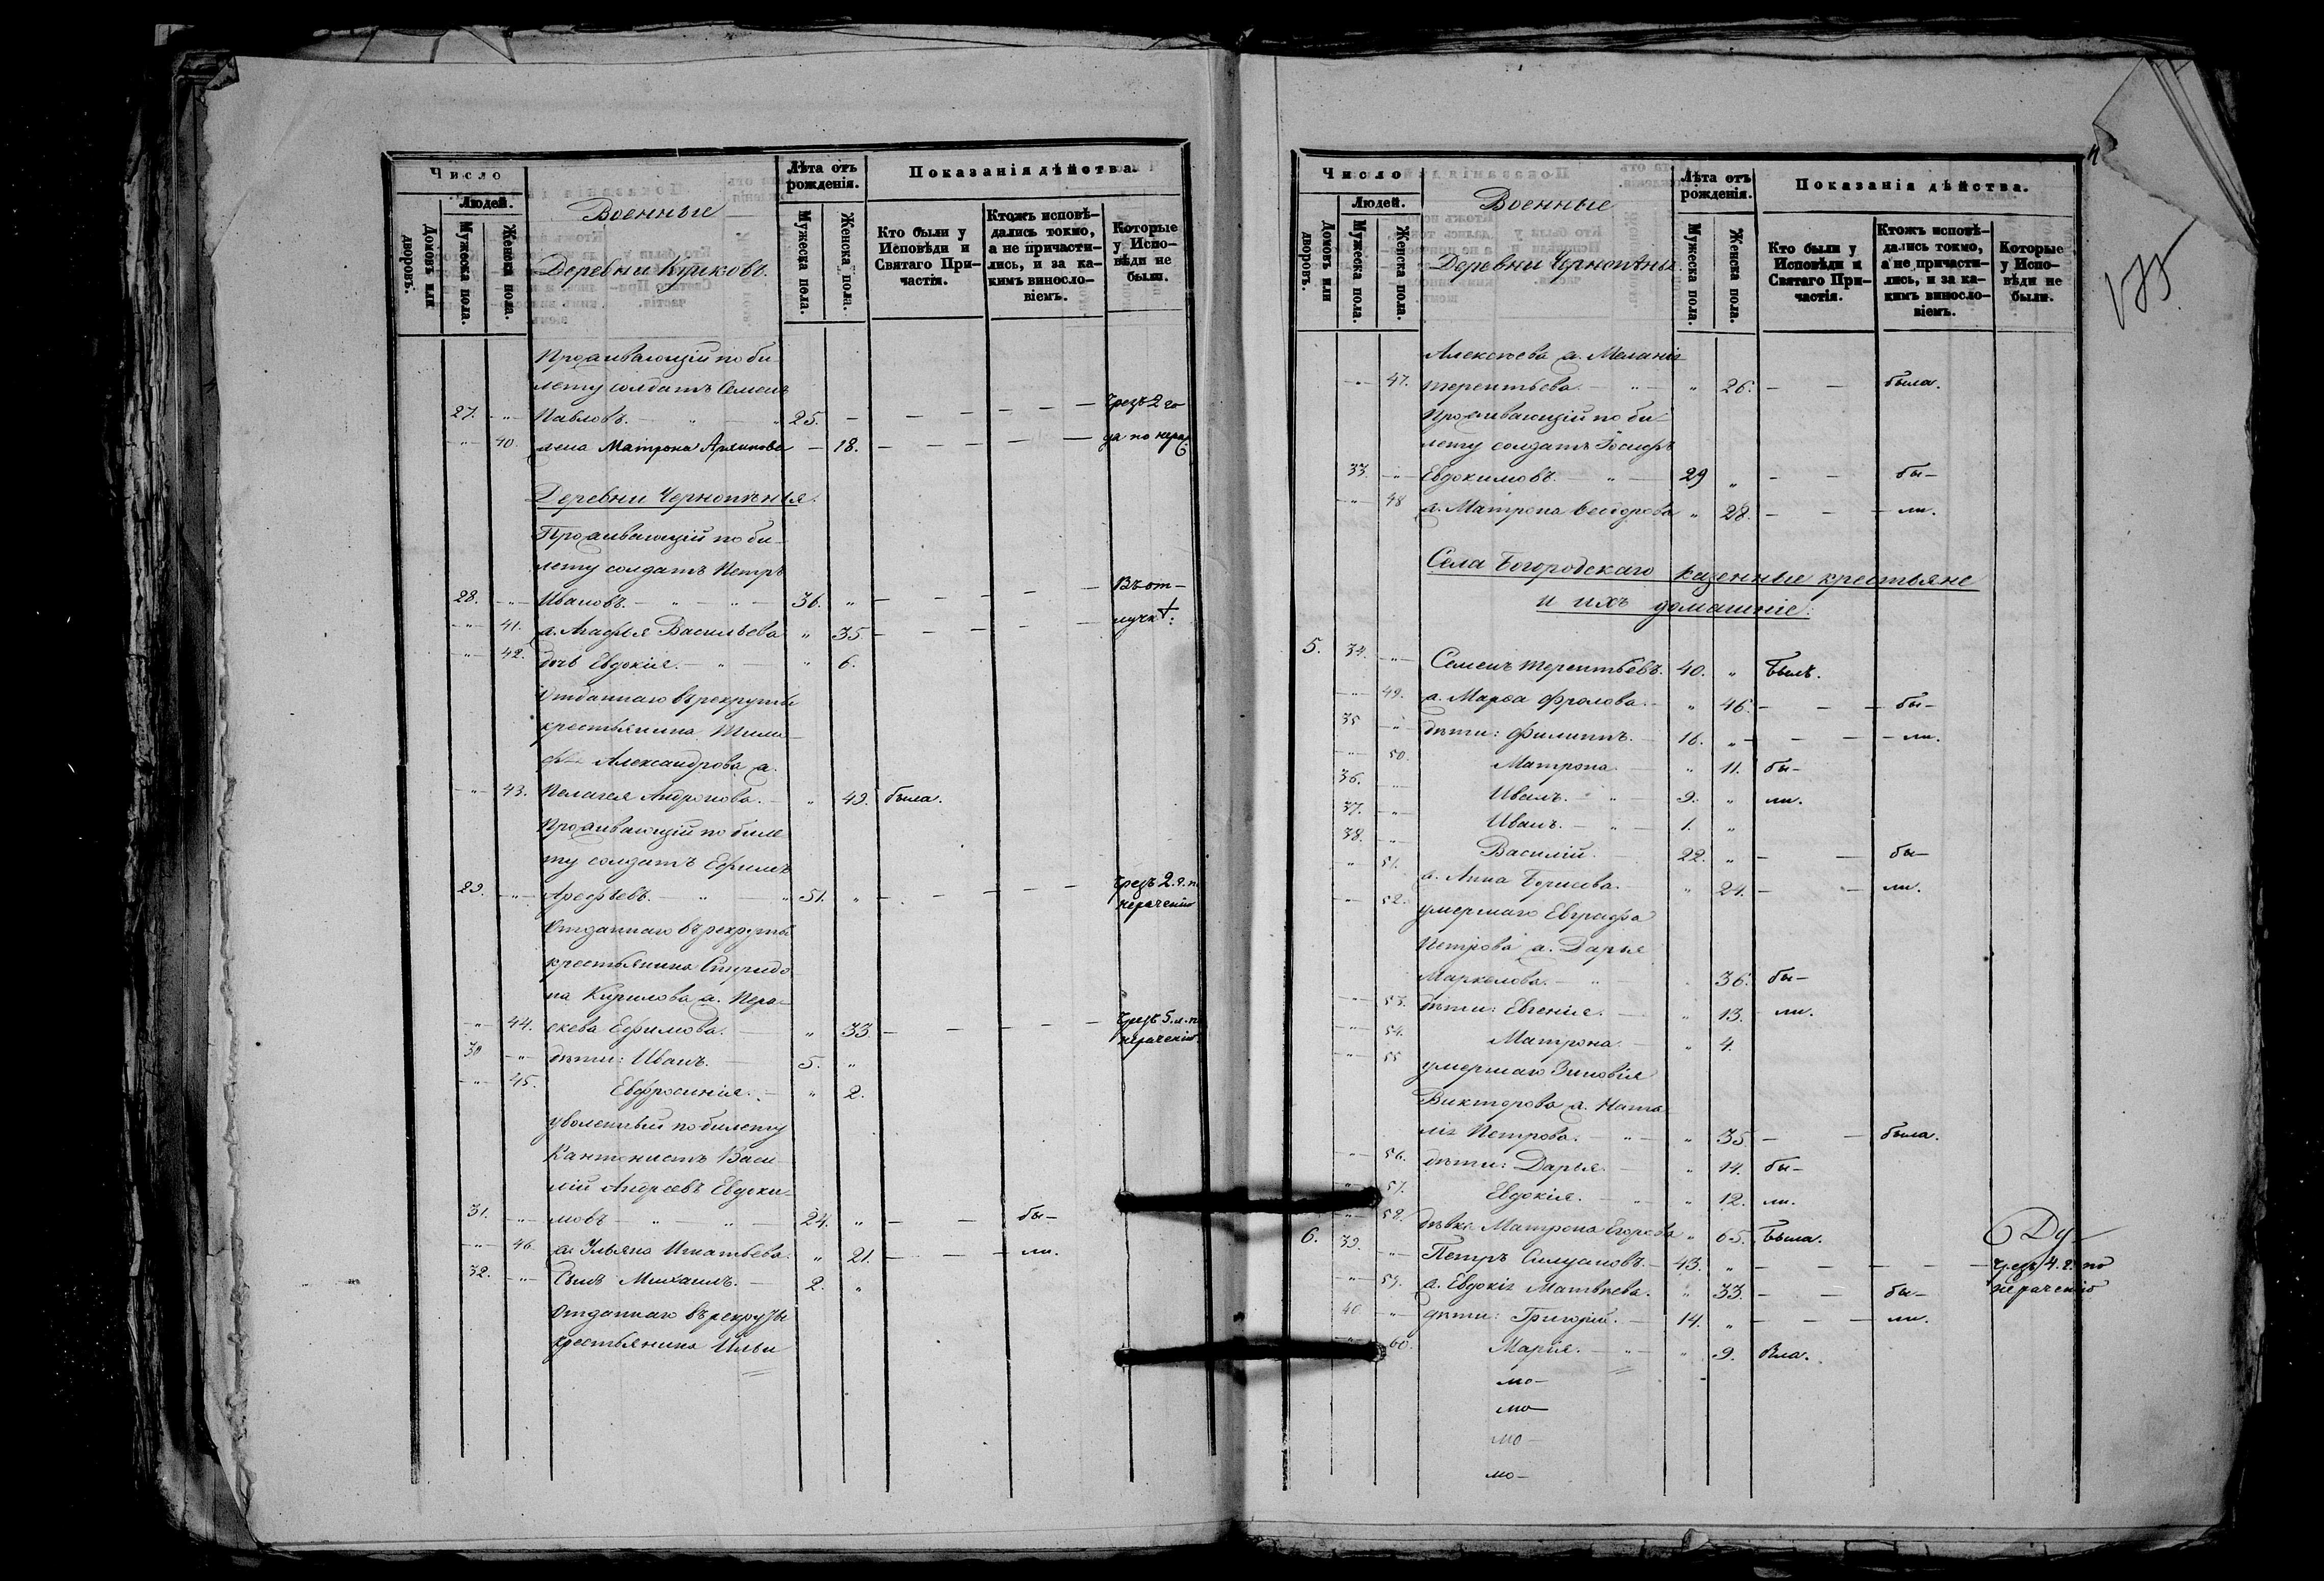 Число
Людей.
Домовъ или дворовъ.
Мужеска пола.
Женска пола.
Военные
Деревни
Лѣта отъ рожденія.
Мужеска пола.
Женска пола.
Показанія дѣйства.
Кто были у Исповѣди и Святаго Причастія.
Ктожъ исповѣдались токмо, а не причастились, и за какимъ винословіемъ.
Которые у Исповѣди не были.
Проживающій по би-
лету солдатъ Семенъ
27. -"- Павловъ. " " 25. Чрезъ 2 го-
-"- 40. жена Матрона 18. да по нерад.
Деревни Чернопѣнья.
Проживающій по би-
лету солдатъ Петръ
28. -"- Ивановъ. " " 36. " Въ от-
-"- 41. ж. Агафья Васильева " 35 лучкѣ:
-"- 42. дочь Евдокія. " " 6.
Отданнаго въ рекруты
крестьянина
Александрова ж.
-"- 43. Пелагея Андронова. " 49. была.
Проживающій по биле-
ту солдатъ Ефимъ
29. -"- Арефьевъ. " " 51. " Чрезъ 2. г. по
нерачению
Отданнаго въ рекруты
крестьянина Спиридо-
на Кирилова ж. Пара-
-"- 44. скева Ефимова. " 33. Чрезъ 5. л. по
нерачению.
30 -"- дѣти: Иванъ. 5. "
-"- 45. Евфросинія. " 2.
Уволенный по билету
Кантонистъ Васи-
лій Андреевъ Евдоки-
31. -"- мовъ " " 24. " бы-
-"- 46. ж. Ульяна Игнатьева. " 21. ли.
32. -"- Сынъ Михаилъ. 2. "
Отданнаго въ рекруты
крестьянина Ильи
Число
Людей.
Домовъ или дворовъ.
Мужеска пола.
Женска пола.
Военные
Деревни Чернопѣнья.
Лѣта отъ рожденія.
Мужеска пола.
Женска пола.
Показанія дѣйства.
Кто были у Исповѣди и Святаго Причастія.
Ктожъ исповѣдались токмо, а не причастились, и за какимъ винословіемъ.
Которые у Исповѣди не были.
175
Алексѣева ж. Меланія
-"- 47. Терентьева. " " 26. была.
Проживающій по би-
лету солдатъ Іосифъ
33. -"- Евдокимовъ. " 29 " бы-
-"- 48 ж. Матрона Ѳеодорова " 28. ли.
Села Богородскаго казенные крестьяне
и ихъ домашніе:
5. 34. -"- Семенъ Терентьевъ. 40. " Былъ.
-"- 49. ж. Марѳа Фролова. " 46. бы-
35 -"- дѣти: Филиппъ. 16. " ли.
-"- 50. Матрона. " 11. бы-
36. -"- Иванъ. 9. " ли.
37. -"- Иванъ. " 1. "
38. -"- Василій. 22. " бы-
" 51. ж. Анна Борисова. " 24. ли.
-"- 52. умершаго Евграфа
Петрова ж. Дарья
Маркелова. " 36. бы-
-"- 53. дѣти: Евгенія. " 13. ли.
-"- 54. Матрона. " 4.
-"- 55 умершаго Зиновія
Викторова ж. Ната-
лія Петрова. " " 35 была.
-"- 56. дѣти: Дарья. " 14. бы-
-"- 57. Евдокія. " " 12. ли.
-"- 58. дѣвка Матрона Егорова " 65. Была.
6. 39. -"- Петръ Силуановъ. 43. " чрезъ 4. г. по
-"- 59. ж. Евдокія Матвѣева. " 33. бы- нерачению
40. -"- дѣти: Григорій. 14. " ли.
-"- 60. Марія. " " 9. Была.
мо-
мо-
мо-
мо-